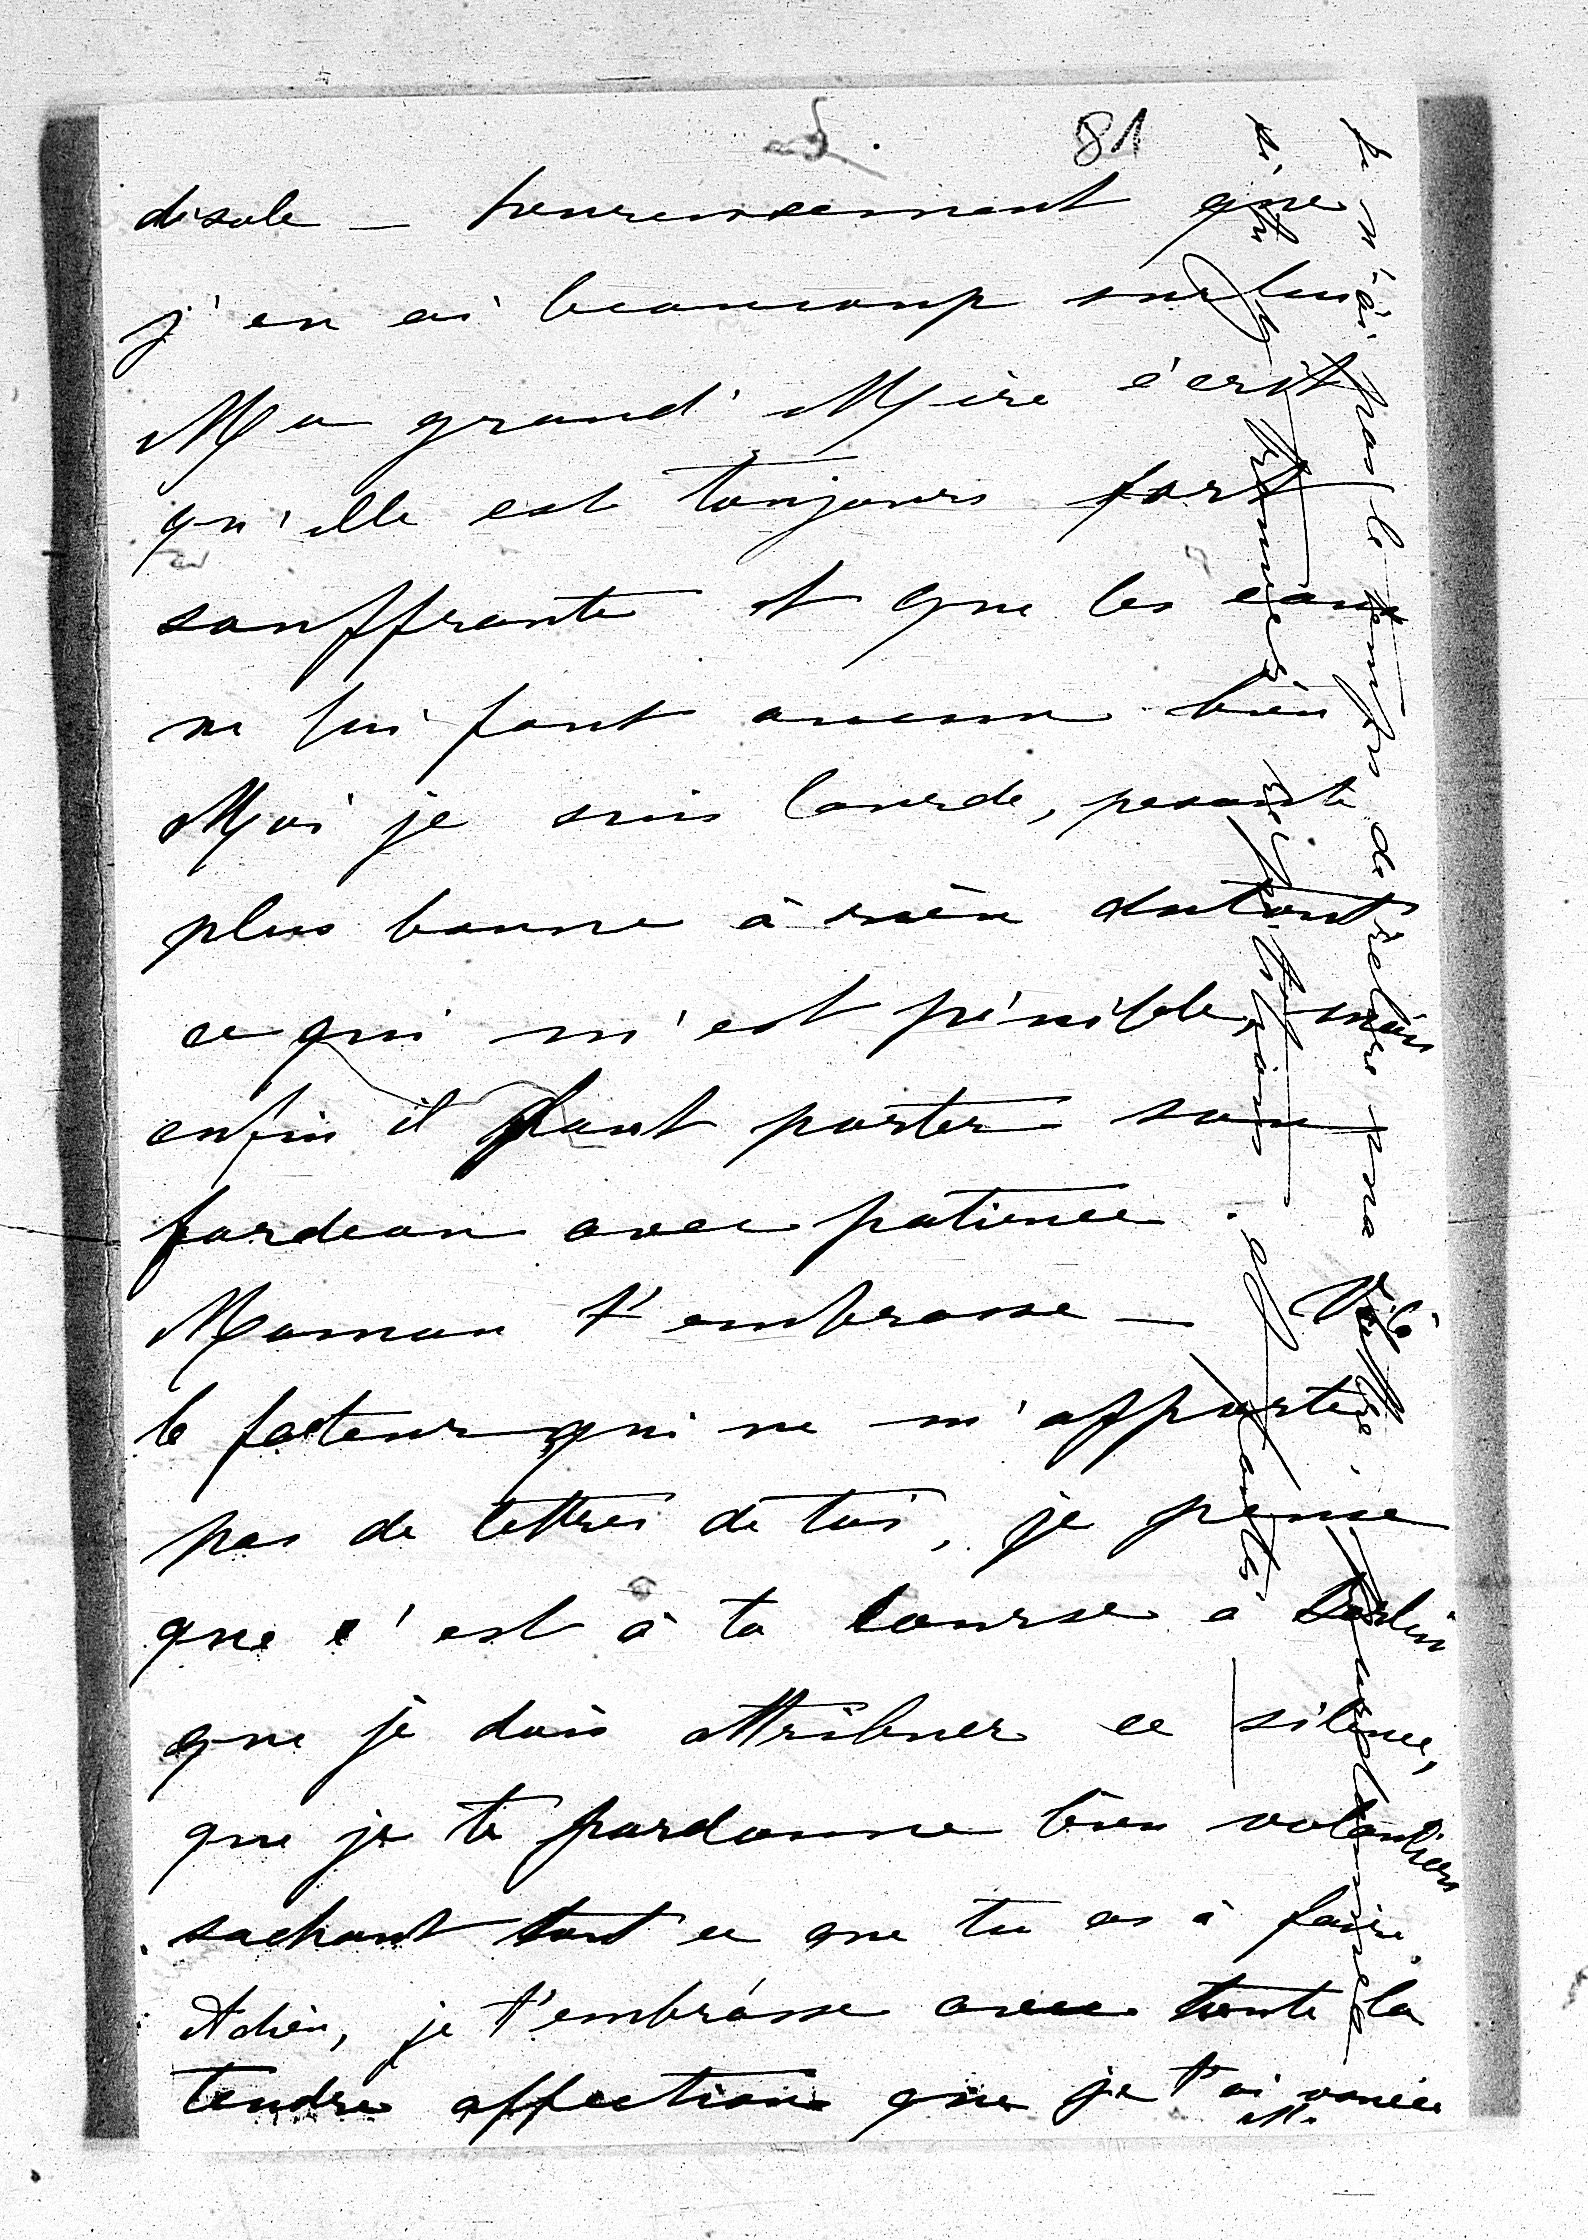 81
désole – heureusement que
j'en ai beaucoup
Ma grand' Mère écrit
qu'elle est toujours fort
souffrante et que les eaux
ne lui font aucun bien
Moi je suis lourde, pesante
plus bonne à rien du tout
ce qui m'est pénible, mais
enfin il faut porter son
fardeau avec patience.
Maman t'embrasse – Voilà
le facteur qui ne m'apporte
pas de lettres de toi, je pense
que c'est à ta course à Berlin
que je dois attribuer ce silence,
que je te pardonne bien volontiers
sachant tout ce que tu as à faire.
Adieu, je t'embrasse avec toute la
tendre affection que je t'ai vouée
M.
Je n'ai pas le temps de relire ma lettre.
si tu y trouves répétitions et fautes